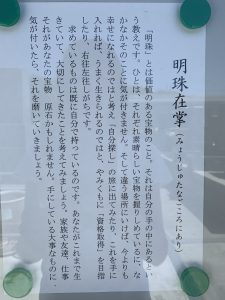 明珠在掌（みょうじゅたなごころにあり）
「明珠」とは価値のある宝物のこと。それは自分の手の中にあるとい
う教えです。ひとは、それぞれ素晴らしい宝物を握りしめているに、な
かなかそのことに気が付きません。そして違う場所にいけば、今よりも
幸せになれるのではと考え、「自分探し」の旅に出てみたり、これを手に
入れれば、うまく生きられるのではと、やみくもに「資格取得」を目指
したり、右往左往しがちです。
求めているものは既に自分で持っているのです。あなたがこれまで生
きていて、大切にしてきたことを考えてみましょう。家族や友達、仕事
それがあなたの宝物　原石かもしれません。手にしている大事なものに
気が付いたら、それを磨いていきましょう。